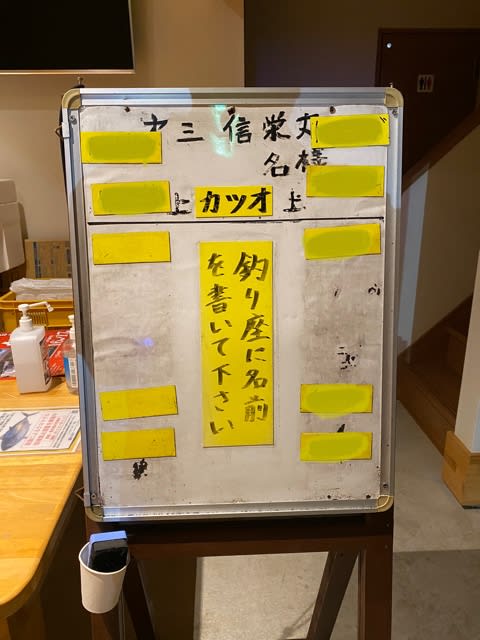 十三信栄丸
名様
上 カツオ 上
釣り座に名前
を書いて下さい